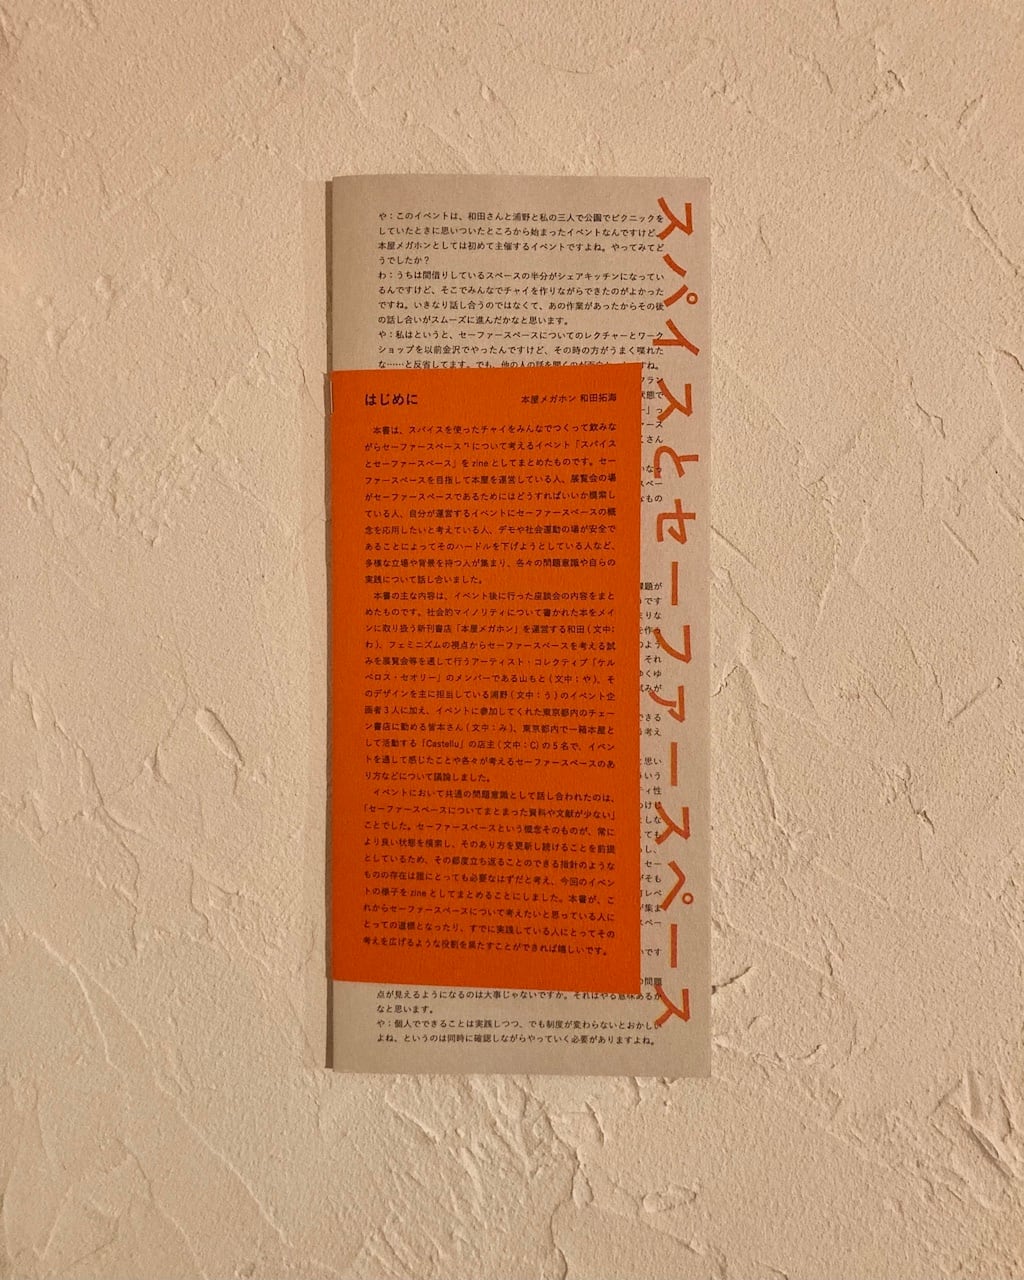 スパイスとセーファースペース
や：このイベントは、和田さんと浦野と私の三人で公園でピクニックを
していたときに思いついたところから始まったイベントなんですけど、
本屋メガホンとしては初めて主催するイベントですよね。やってみてど
うでしたか？
わ：うちは間借りしているスペースの半分がシェアキッチンになってい
るんですけど、そこでみんなでチャイを作りながらできたのがよかった
ですね。いきなり話し合うのではなくて、あの作業があったからその後
の話し合いがスムーズに進んだかなと思います。
や：私はというと、セーファースペースについてのレクチャーとワーク
ショップを以前金沢でやったんですけど、その時の方がうまく喋れた
な……と反省してます。でも、他の人の話を聞くのが
はじめに
本屋メガホン 和田拓海
本書は、スパイスを使ったチャイをみんなでつくって飲みな
がらセーファースペース*¹について考えるイベント『スパイス
とセーファースペース』を zine としてまとめたものです。セー
ファースペースを目指して本屋を運営している人、展覧会の場
がセーファースペースであるためにはどうすればいいか模索し
ている人、自分が運営するイベントにセーファースペースの概
念を応用したいと考えている人、デモや社会運動の場が安全で
あることによってそのハードルを下げようとしている人など、
多様な立場や背景を持つ人が集まり、各々の問題意識や自らの
実践について話し合いました。
本書の主な内容は、イベント後に行った座談会の内容をまと
めたものです。社会的マイノリティについて書かれた本をメイ
ンに取り扱う新刊書店「本屋メガホン」を運営する和田（文中：
わ）、フェミニズムの視点からセーファースペースを考える試
みを展覧会等を通して行うアーティスト・コレクティブ「ケル
ベロス・セオリー」のメンバーである山もと（文中：や）、そ
のデザインを主に担当している浦野（文中：う）のイベント企
画者3人に加え、イベントに参加してくれた東京都内のチェー
ン書店に勤める皆本さん（文中：み）、東京都内で一箱本屋と
して活動する「Castellu」の店主（文中：C）の5名で、イベン
トを通して感じたことや各々が考えるセーファースペースのあ
り方などについて議論しました。
イベントにおいて共通の問題意識として話し合われたのは、
「セーファースペースについてまとまった資料や文献が少ない」
ことでした。セーファースペースという概念そのものが、常に
より良い状態を模索し、そのあり方を更新し続けることを前提
としているため、その都度立ち返ることのできる指針のような
ものの存在は誰にとっても必要なはずだと考え、今回のイベン
トの様子を zine としてまとめることにしました。本書が、こ
れからセーファースペースについて考えたいと思っている人に
とっての道標となったり、すでに実践している人にとってその
考えを広げるような役割を果たすことができれば嬉しいです。
点が見えるようになるのは大事じゃないですか。それはやる意味あるか
なと思います。
や：個人でできることは実践しつつ、でも制度が変わらないとおかしい
よね、というのは同時に確認しながらやっていく必要がありますよね。